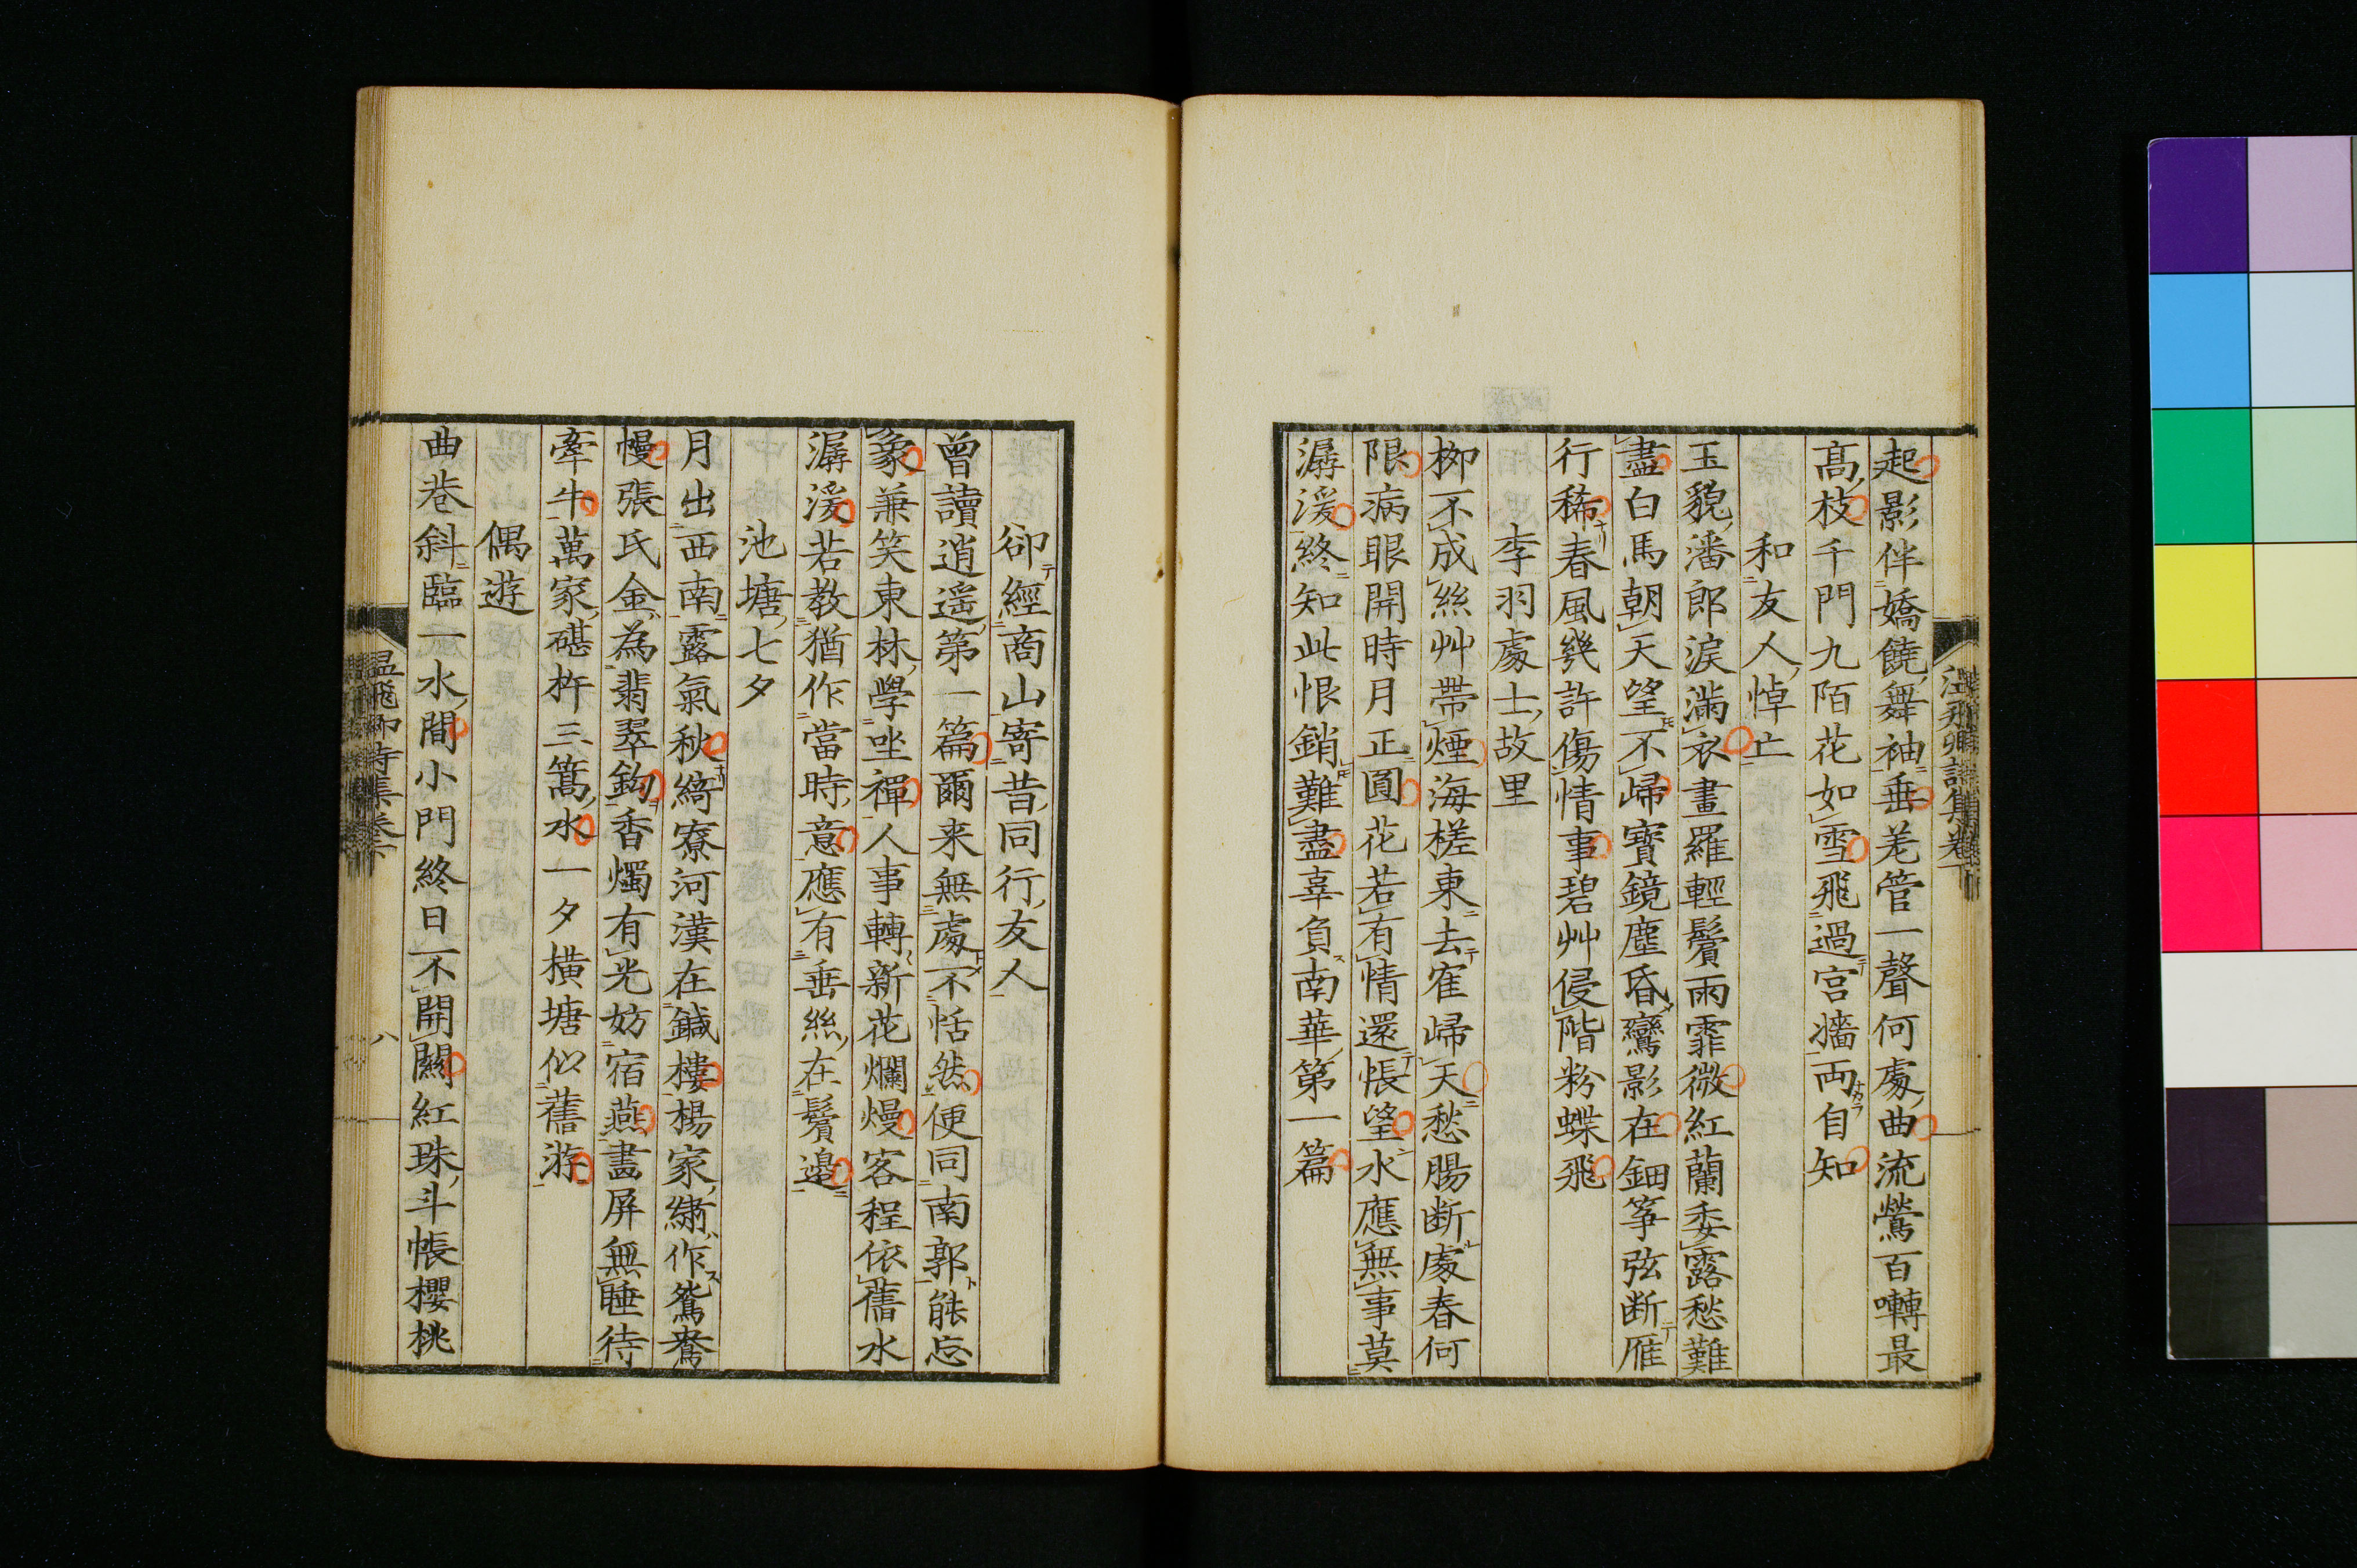 起影伴嬌饒舞袖垂羌管一聲何處曲流鶯百囀最
高枝千門九陌花如雪飛過宮牆両自知
和友人悼亡
玉貌潘郎淚滿衣畫羅輕鬢雨霏微紅蘭委露愁難
盡白馬朝天望不歸寶鏡塵昏鸞影在鈿筝弦断雁
行稀春風幾許傷情事碧艸侵階粉蝶飛
李羽處士故里
栁不成絲艸帶煙海槎東去寉歸天愁腸断處春何
限病眼開時月正圓花若有情還悵望水應無事莫
潺湲終知此恨銷難盡辜負南華第一篇
卻經商山寄昔同行友人
曾讀逍遥第一篇爾来無處不恬然便同南郭能忘
象兼笑東林學坐禪人事轉新花爛熳客程依舊水
潺湲若教猶作當時意應有垂絲在鬢邉
池塘七夕
月出西南露氣秋綺寮河漢在鍼樓楊家繡作鴛鴦
幔張氏金為翡翠鉤香燭有光妨宿燕畫屏無睡待
牽牛萬家碪杵三篙水一夕横塘似舊游
偶遊
曲巷斜臨一水間小門終日不開關紅珠斗帳櫻桃
温飛卿詩集卷下
八